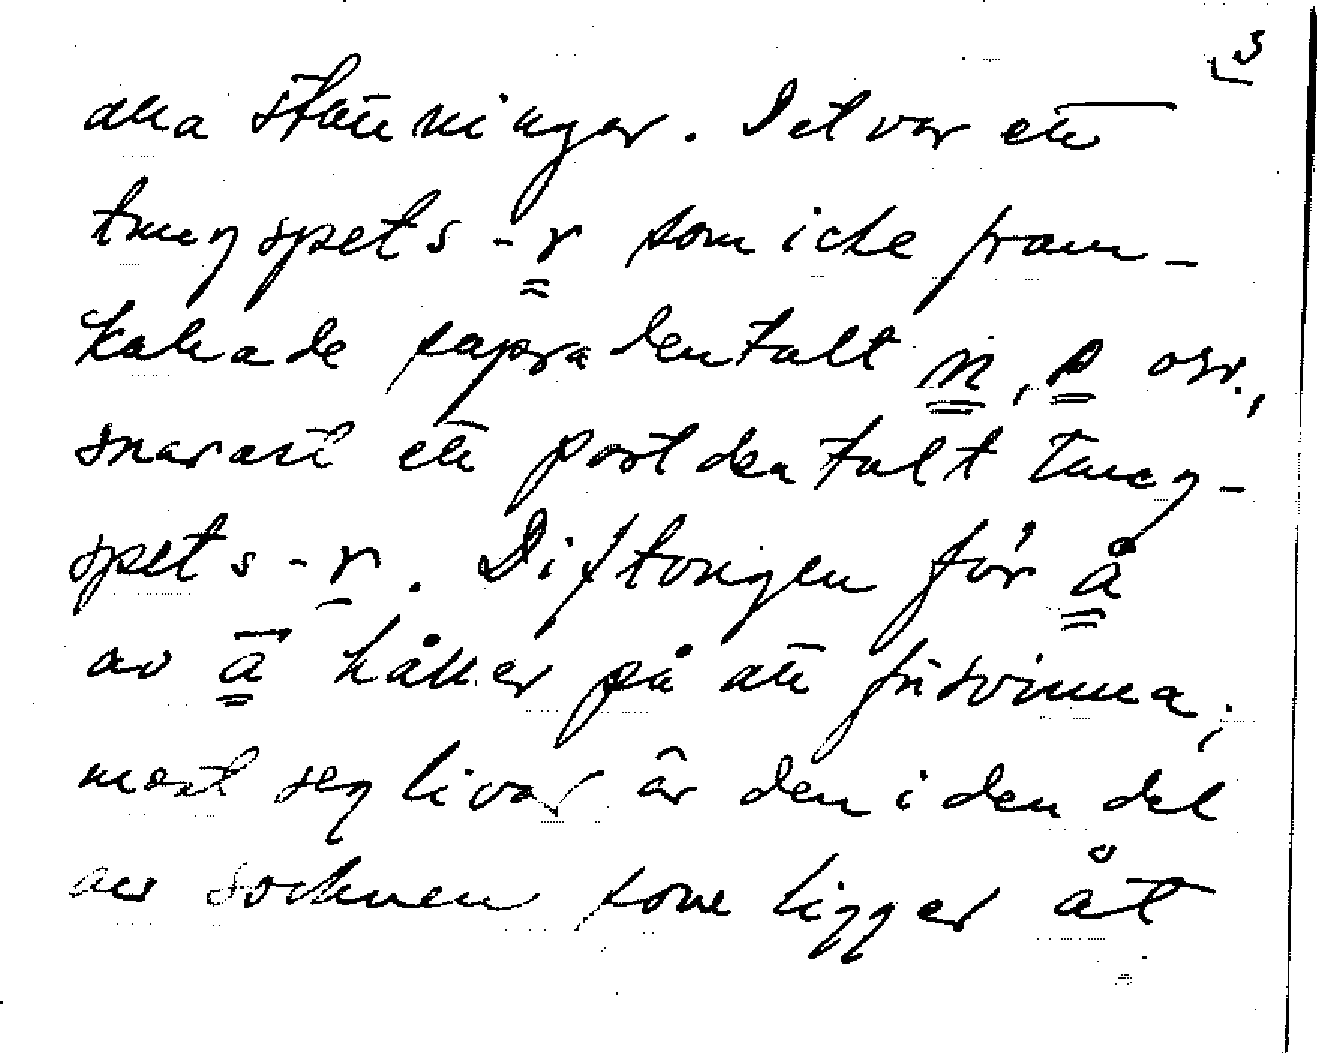 3
alla ställningar. Det var ett
tungspets-r som icke fram-
kallade supradentalt n, s osv.,
snarast ett postdentalt tung-
spets-r. Diftongen för å
av ā håller på att försvinna;
mest seglivar är den i den del
av socknen som ligger åt